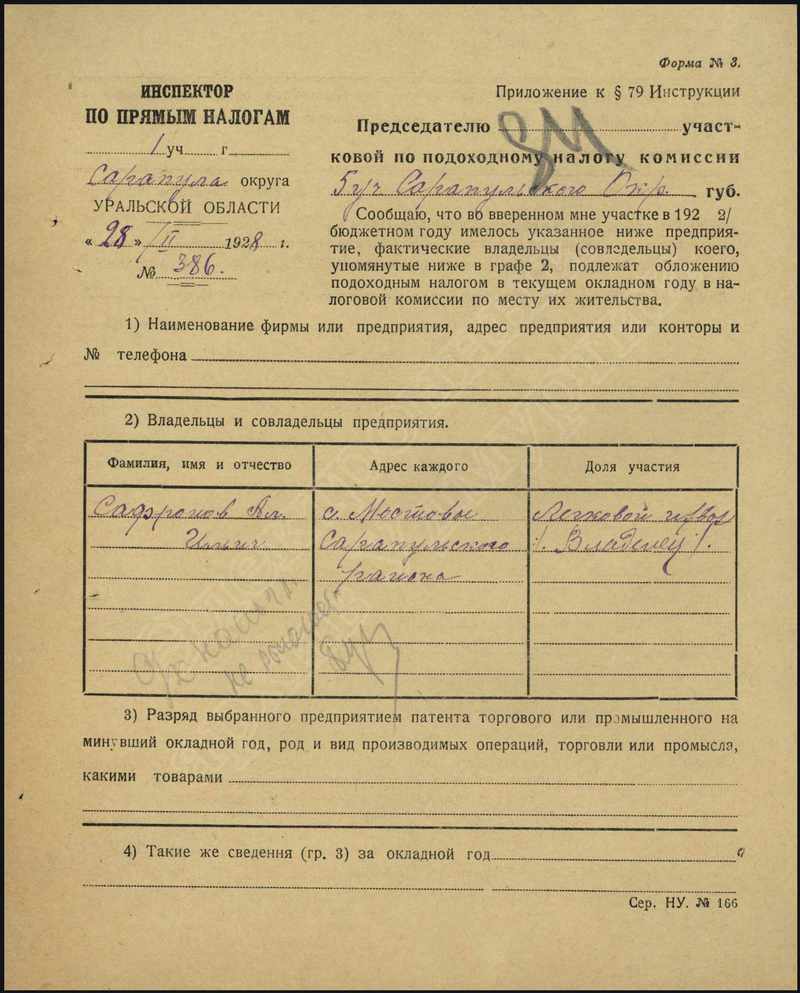 Форма № 3.
ИНСПЕКТОР
ПО ПРЯМЫМ НАЛОГАМ
1 уч г
Сарапула округа
УРАЛЬСКОЙ ОБЛАСТИ
«28» II 1928 г.
№ 386.
Приложение к § 79 Инструкции
Председателю участ-
ковой по подоходному налогу комиссии
5 уч Сарапульского Окр. губ.
Сообщаю, что во вверенном мне участке в 192 2/
бюджетном году имелось указанное ниже предприя-
тие, фактические владельцы (совладельцы) коего,
упомянутые ниже в графе 2, подлежат обложению
подоходным налогом в текущем окладном году в на-
логовой комиссии по месту их жительства.
1) Наименование фирмы или предприятия, адрес предприятия или конторы и
№ телефона
2) Владельцы и совладельцы предприятия.
Фамилия, имя и отчество Адрес каждого Доля участия
Сафронов Ал. с. Мостовые Легковой извоз
Ильич Сарапульского /. Владелец /.
района
не
3) Разряд выбранного предприятием патента торгового или промышленного на
минувший окладной год, род и вид производимых операций, торговли или промысла,
какими товарами
4) Такие же сведения (гр. 3) за окладной год
Сер. НУ. № 166